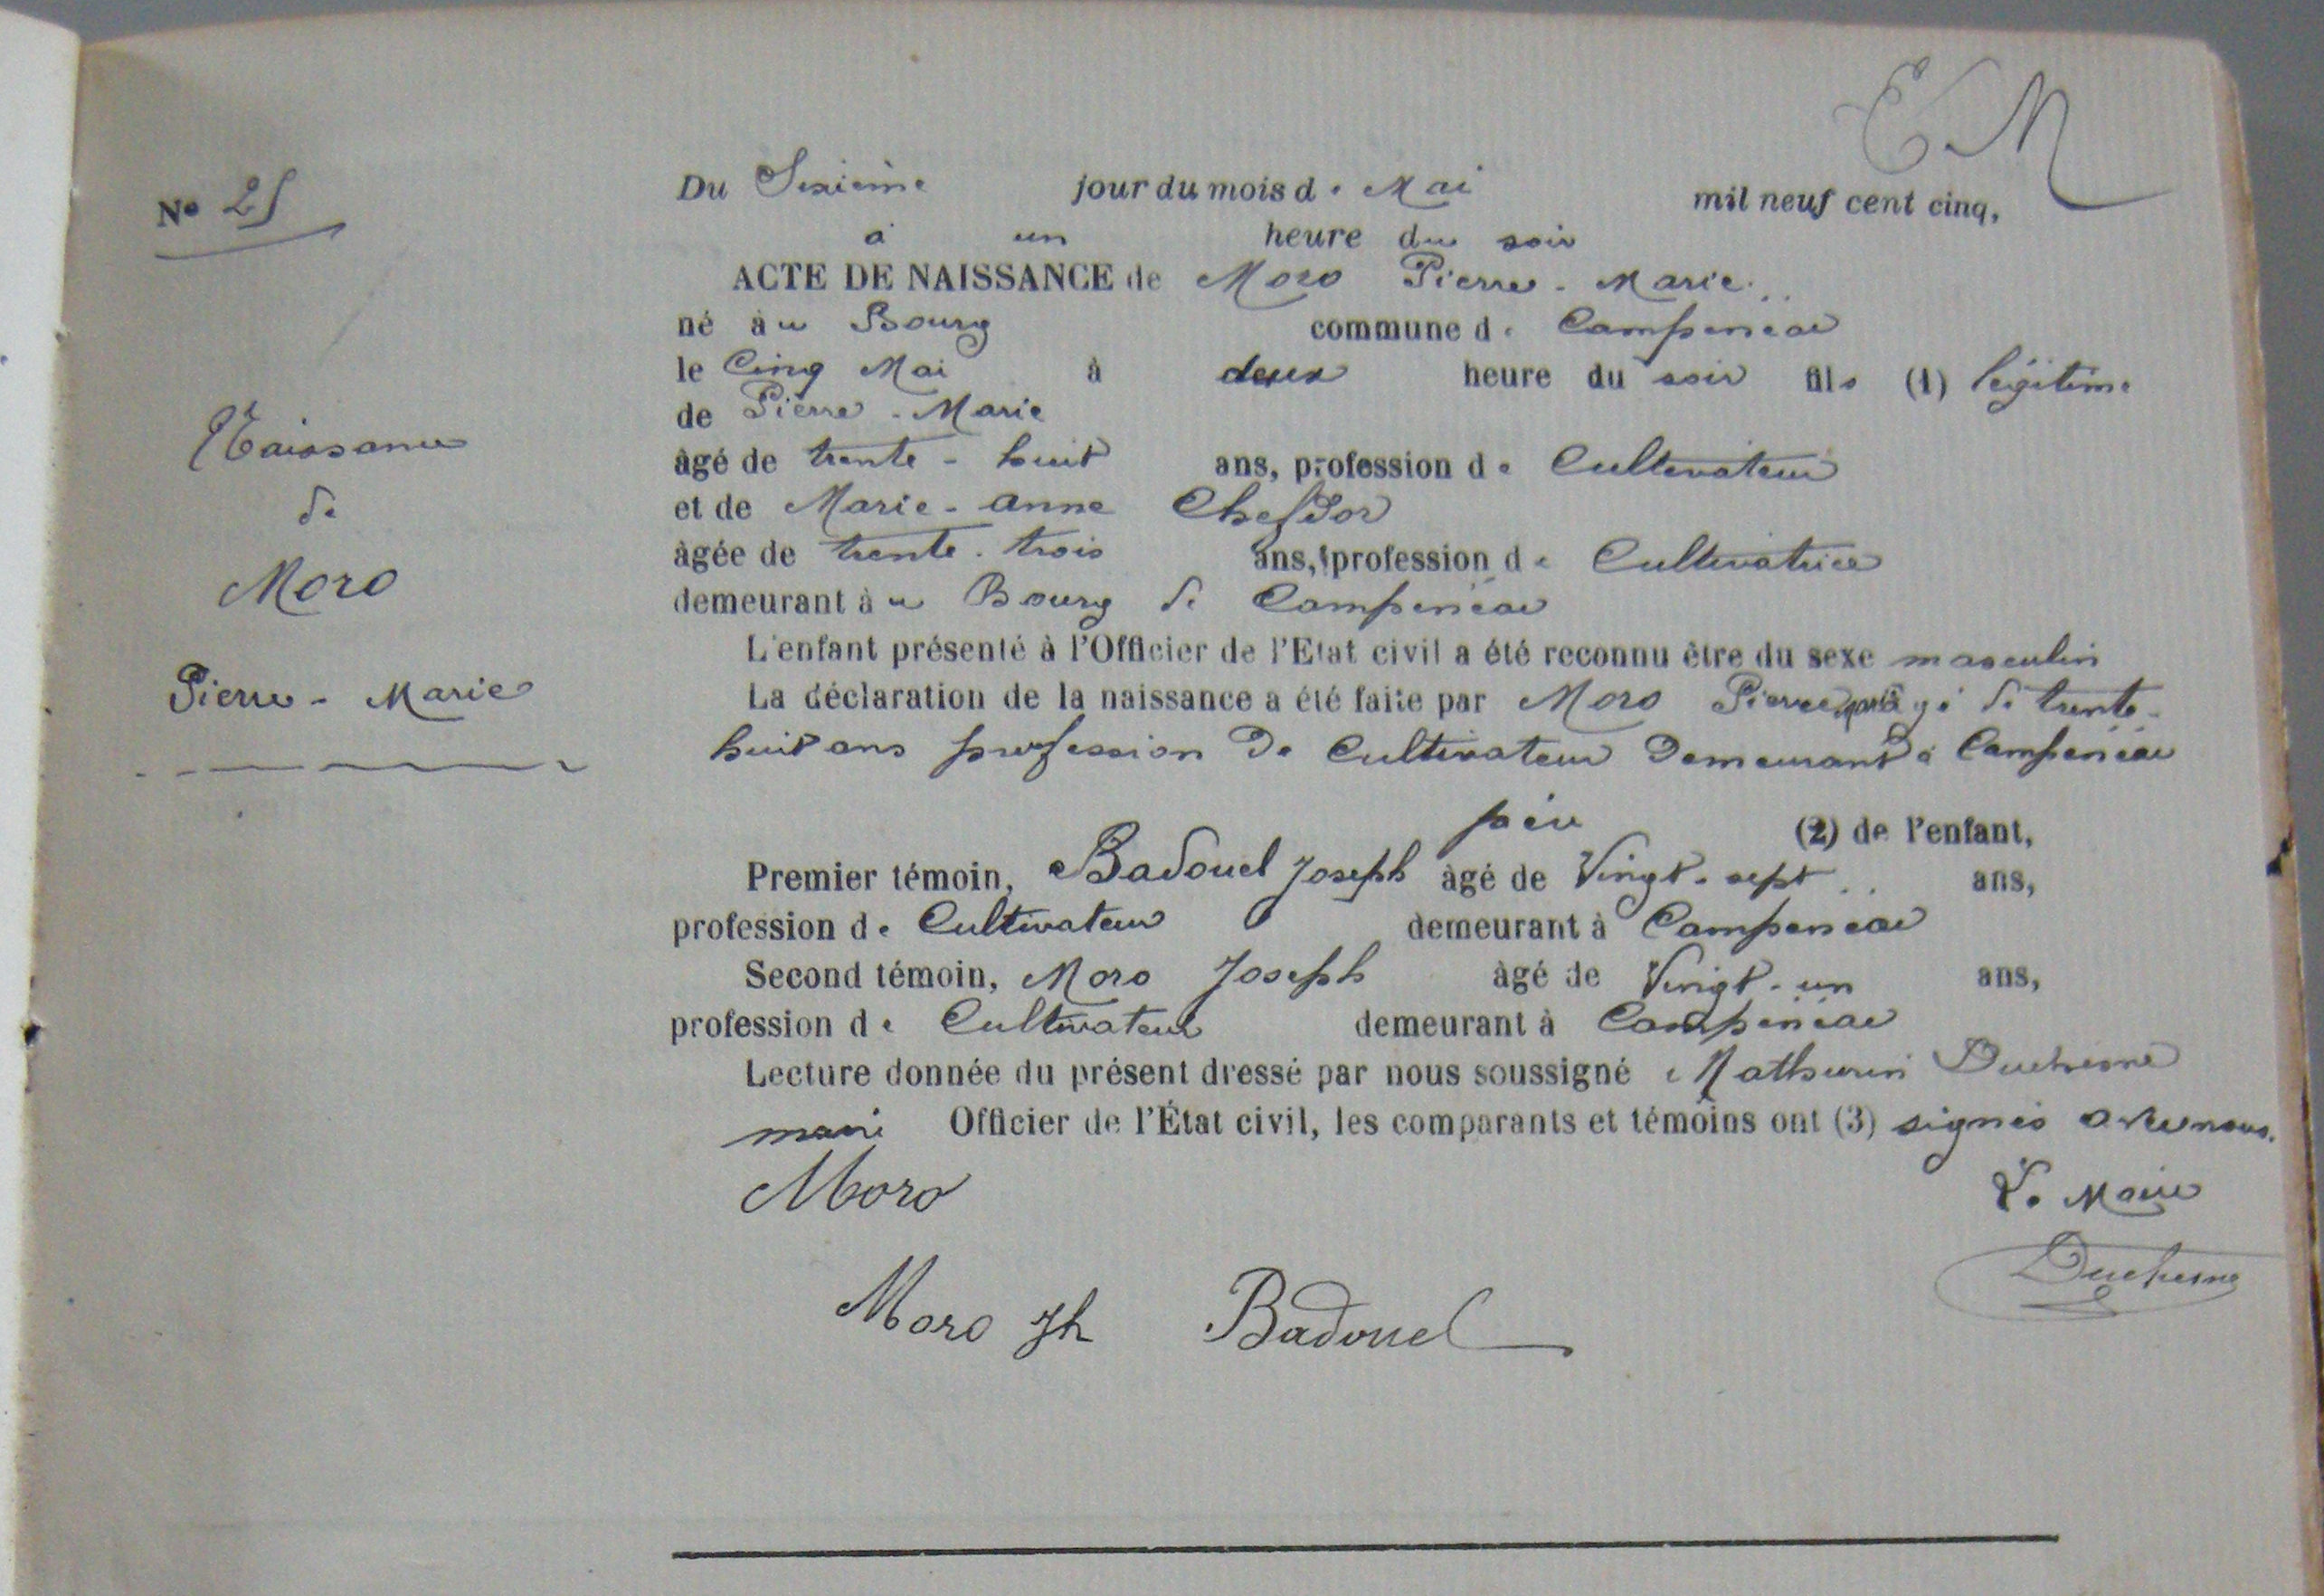 E M
Nº 25
Naissance
de
Moro
Pierre - Marie
Du Sixième jour du mois de Mai mil neuf cent cinq,
à un heure du soir
ACTE DE NAISSANCE de Moro Pierre - Marie
né au Bourg commune de Campénéac
le Cinq Mai à deux heure du soir fils (1) légitime
de Pierre - Marie
âgé de trente - huit ans, profession de Cultivateur
et de Marie - Anne Chefdor
âgée de trente - trois ans, profession de Cultivatrice
demeurant au Bourg de Campénéac
L'enfant présenté à l'Officier de l'Etat civil a été reconnu être du sexe masculin
La déclaration de la naissance a été faite par Moro Pierre Marie âgé de trente -
huit ans profession de Cultivateur Demeurant à Campénéac
père (2) de l'enfant,
Premier témoin, Badouel Joseph âgé de Vingt - sept ans,
profession de Cultivateur demeurant à Campénéac
Second témoin, Moro Joseph âgé de Vingt - un ans,
profession de Cultivateur demeurant à Campénéac
Lecture donnée du présent dressé par nous soussigné Mathurin Duchesne
maire Officier de l'État civil, les comparants et témoins ont (3) signés avec nous.
Moro
Le Maire
Duchesne
Moro Jh Badouel